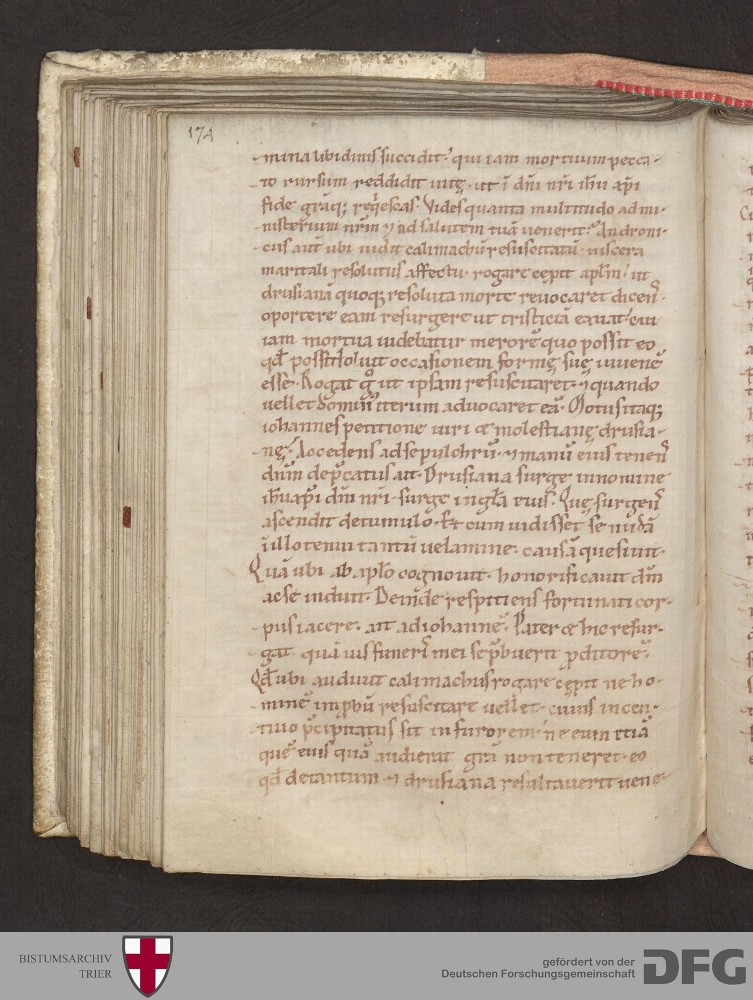 174
mina libidinis succidit. qui iam mortuum pecca-
to rursum reddidit uitę. ut í dn̄i nr̄i ih̄u xp̄i
fide grāq; reqͥescas. Vides quanta multitudo ad mi-
nisterium nr̄m ⁊ ad salutem tuā uenerit. Androni-
cus aut̄ ubi uidit calimachū resuscitatū. uiscera
maritali resolutus affectu. rogare cępit apl̄m ut
drusianā quoq; resoluta morte reuocaret dicen̄.
oportere eam resurgere ut tristiciā exuat. cui
iam mortua uidebatur merore quo possit eo
qd̄ possit solui occasionem formę suę uiuenē
esse. Rogat gͦ ut ipsam resuscitaret. ⁊ quando
uellet dominꝰ iterum aduocaret eā. Motus itaq;
iohannes petitione uiri ex molestia nę drusia-
nę. Accedens ad sepulchrū. ⁊ manū eius tenen̄
dn̄m dep̄catus ait. Drusiana surge in nomine
ih̄u xp̄i dn̄i nr̄i. surge in gl̄a eius. Quę surgen̄
ascendit de tumulo. Et cum uidisset se nudā
ī illo tenui tantū uelamine. causā quesiuit.
Quā ubi ab apl̄o cognouit. honorificauit dn̄m
ac se induit. Deinde respitiens fortunati cor-
pus iacere. ait ad iohannē. Pater ex hic resur-
gat quā uis funerī mei se p̄buerit ꝓditorē.
Qd̄ ubi audiuit calimachus rogare cępit ne ho-
minē improbū resuscitare uellet. cuius incen-
tiuo p̄cipitatus sit in furorem. ne eum etiā
quē eius quā audierat grā non teneret. eo
qd̄ de tantum ⁊ drusiana resultauerit uene-
BISTUMSARCHIV
TRIER
gefördert von der
Deutschen Forschungsgemeinschaft
DFG